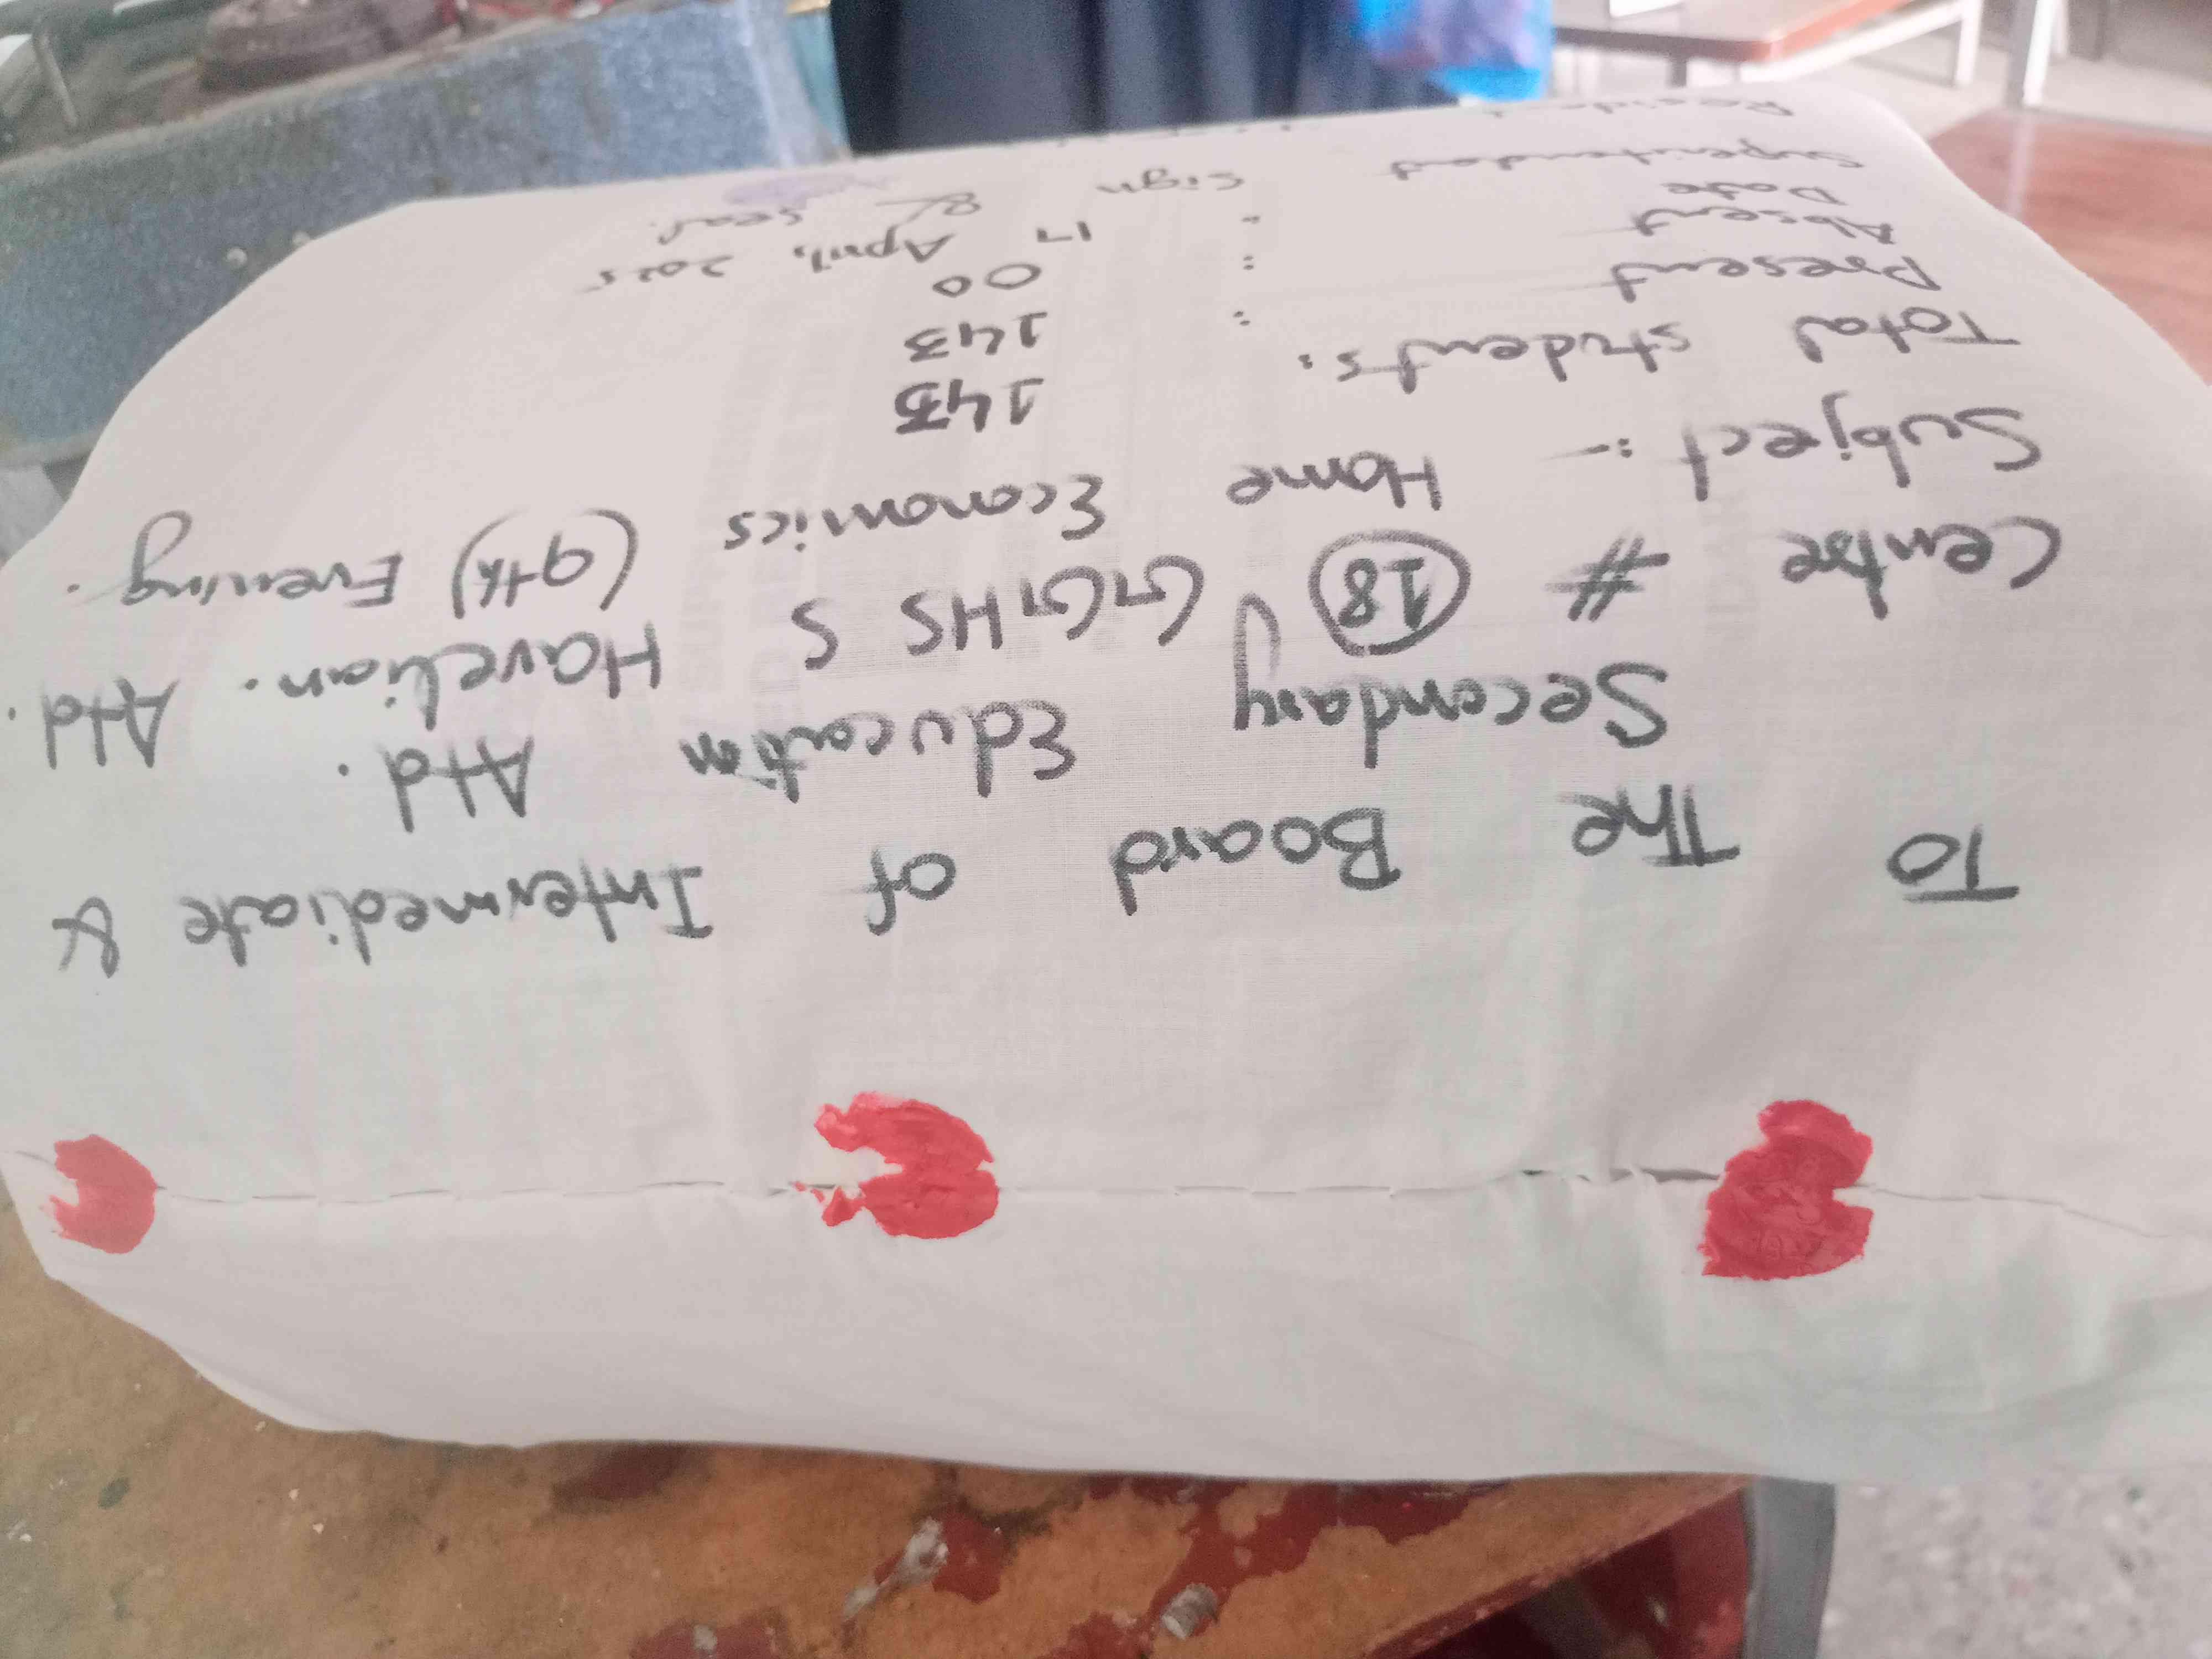 To The Board of Intermediate &
Secondary Education Atd.
Centre # 18 GGHS S Havelian. Atd.
Subject :- Home Economics (9th) Evening.
Total students: 143
Present : 143
Absent : 00
Date : 17 April, 2025
Superitendad Sign & Seal.